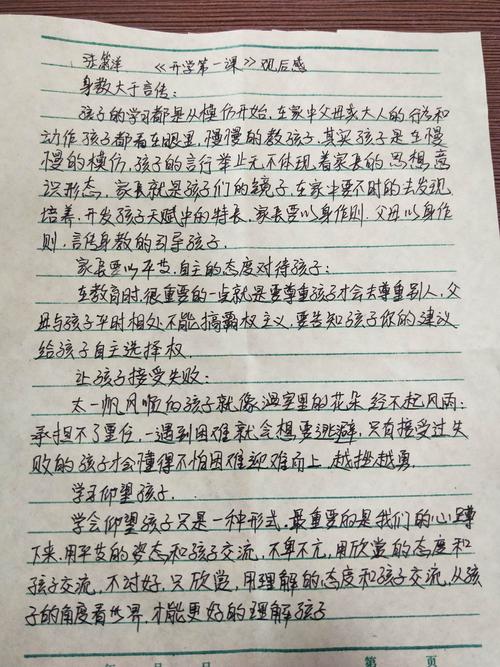 张 洋 《开学第一课》观后感
身教大于言传:
孩子的学习都是从模仿开始,在家中父母亲大人的行为和
动作,孩子都看在眼里,慢慢的教孩子,其实孩子是在慢
慢的模仿,孩子的言行举止无不体现着家长的思想,意
识形态,家长就是孩子们的镜子,在家中要不时的去发现
培养,开发孩子天赋中的特长,家长要以身作则.父母以身作
则,言传身教的引导孩子.
家长要以平等.自主的态度对待孩子:
在教育时.很重要的一点就是要尊重孩子才会去尊重别人,父
母与孩子平时相处不能搞霸权主义,要告知孩子你的建议
给孩子自主选择权.
让孩子接受失败:
太一帆风顺的孩子就像温室里的花朵经不起风雨;
承担不了重任,一遇到困难就会想要逃避,只有接受过失
败的孩子才会懂得不怕困难迎难而上,越挫越勇.
学习仰望孩子.
学会仰望孩子只是一种形式,最重要的是我们的心蹲
下来,用平等的姿态和孩子交流,不卑不亢,用欣赏的态度和
孩子交流,不讨好,只欣赏,用理解的态度和孩子交流,从孩
子的角度看世界,才能更好的理解孩子
年 月 日 第 页